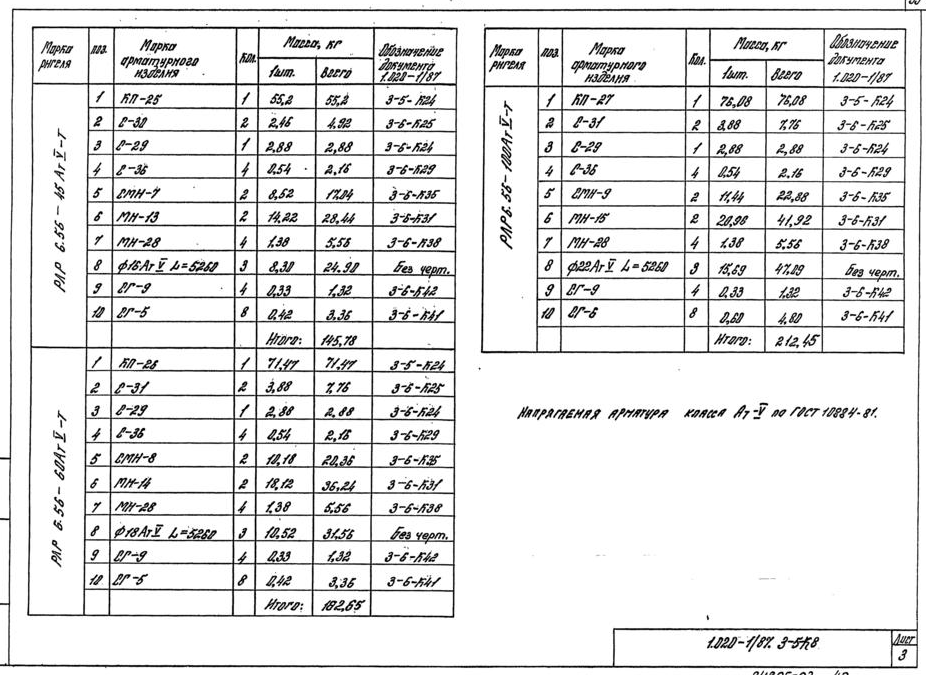 Марка ригеля | поз. | Марка арматурного изделия | Кол. | Масса, кг 1шт. | Масса, кг Всего | Обозначение документа 1.020-1/87
РАР 6.56-45 АтV-Т
1 | КП-25 | 1 | 55,2 | 55,2 | 3-5-К24
2 | С-30 | 2 | 2,46 | 4,92 | 3-6-К25
3 | С-29 | 1 | 2,88 | 2,88 | 3-6-К24
4 | С-36 | 4 | 0,54 | 2,16 | 3-6-К29
5 | СМН-7 | 2 | 8,52 | 17,04 | 3-6-К35
6 | МН-13 | 2 | 14,22 | 28,44 | 3-6-К31
7 | МН-28 | 4 | 1,38 | 5,56 | 3-6-К38
8 | ф16АтV L=5260 | 3 | 8,30 | 24.90 | Без черт.
9 | СГ-9 | 4 | 0,33 | 1,32 | 3-6-К42
10 | СГ-5 | 8 | 0,42 | 3,36 | 3-6-К41
Итого: 145,78
РАР 6.56-60АтV-Т
1 | КП-26 | 1 | 71,47 | 71,47 | 3-5-К24
2 | С-31 | 2 | 3,88 | 7,76 | 3-6-К25
3 | С-29 | 1 | 2,88 | 2,88 | 3-6-К24
4 | С-36 | 4 | 0,54 | 2,16 | 3-6-К29
5 | СМН-8 | 2 | 10,18 | 20,36 | 3-6-К35
6 | МН-14 | 2 | 18,12 | 36,24 | 3-6-К31
7 | МН-28 | 4 | 1,38 | 5,56 | 3-6-К38
8 | ф18АтV L=5260 | 3 | 10,52 | 31,56 | Без черт.
9 | СГ-9 | 4 | 0,33 | 1,32 | 3-6-К42
10 | СГ-5 | 8 | 0,42 | 3,36 | 3-6-К41
Итого: 182,65
Марка ригеля | поз. | Марка арматурного изделия | Кол. | Масса, кг 1шт. | Масса, кг Всего | Обозначение документа 1.020-1/87
РАР 6.56-100АтV-Т
1 | КП-27 | 1 | 76,08 | 76,08 | 3-5-К24
2 | С-31 | 2 | 3,88 | 7,76 | 3-6-К25
3 | С-29 | 1 | 2,88 | 2,88 | 3-6-К24
4 | С-36 | 4 | 0,54 | 2,16 | 3-6-К29
5 | СМН-9 | 2 | 11,44 | 22,88 | 3-6-К35
6 | МН-15 | 2 | 20,96 | 41,92 | 3-6-К31
7 | МН-28 | 4 | 1,38 | 5,56 | 3-6-К38
8 | ф22АтV L=5260 | 3 | 15,69 | 47,09 | Без черт.
9 | СГ-9 | 4 | 0,33 | 1,32 | 3-6-К42
10 | СГ-6 | 8 | 0,60 | 4,80 | 3-6-К41
Итого: 212,45
Напрягаемая арматура класса Ат-V по ГОСТ 10884-81.
1.020-1/87. 3-5К8
Лист
3